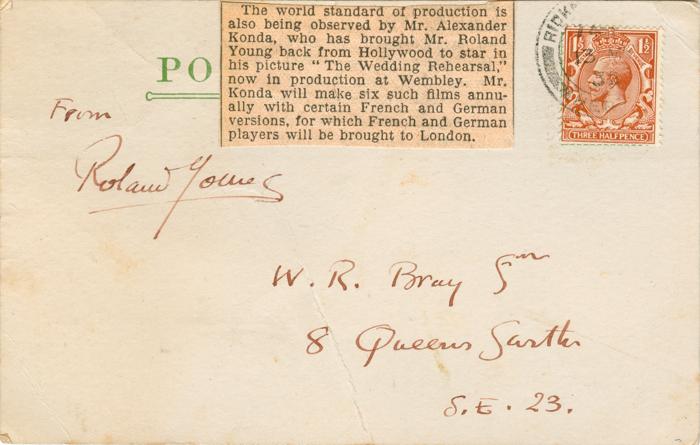 The world standard of production is
also being observed by Mr. Alexander
Konda, who has brought Mr. Roland
Young back from Hollywood to star in
his picture “The Wedding Rehearsal,”
now in production at Wembley. Mr.
Konda will make six such films annu-
ally with certain French and German
versions, for which French and German
players will be brought to London.
PO
RICK
1½ 1½
THREE HALFPENCE
From
Roland Young
W. R. Bray
8 Queens Garth
S.E. 23.